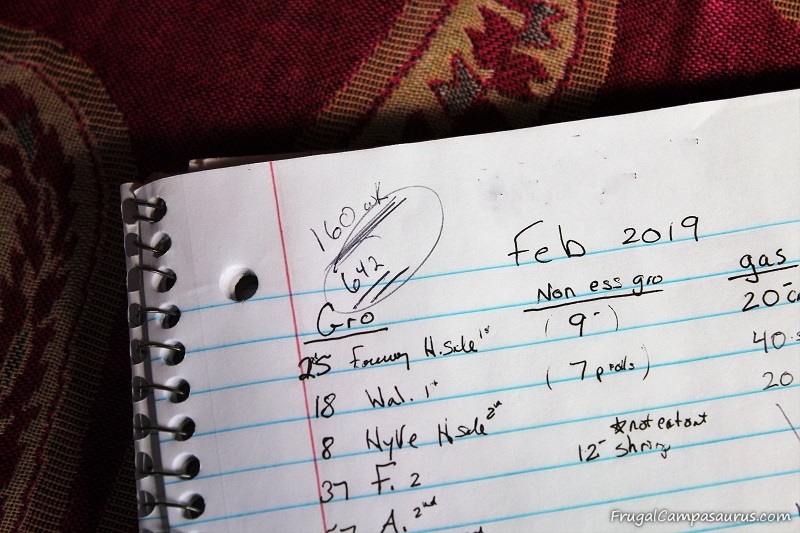 160 wk
642
Feb 2019
Gro
Non ess gro
gas
25 H.Sale 1st
(9-)
20-
18 Wal. 1st
(7 prolls)
40.
8 HyVe H.sale 2nd
20
37 F. 2
*not eat out
12-
A. 2nd
FrugalCampasaurus.com